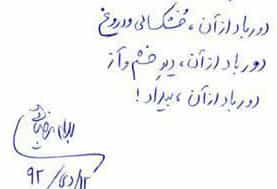 دور باد از آن، خشکسالی و دروغ
دور باد از آن، دیو خشم و آز
دور باد از آن، بیداد!
۱۲/دی/۹۲